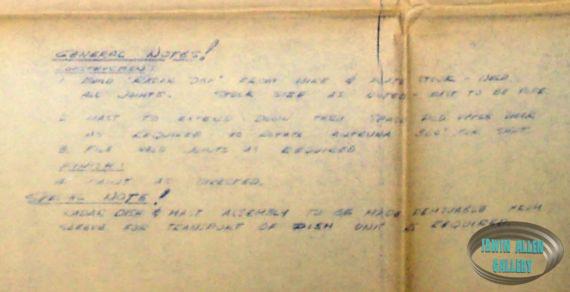 GENERAL NOTES!
CONSTRUCTION:
1. BUILD "RADAR DISH" FROM WIRE & PLATE STOCK - WELD
ALL JOINTS. STOCK SIZE AS NOTED - TO BE
2. MAST TO EXTEND DOWN THRU UPPER DECK
AS REQUIRED TO ROTATE ANTENNA 360° FOR SHOT.
3. FILE WELD JOINTS AS REQUIRED
FINISH:
PAINT AS DIRECTED.
SPECIAL NOTE!
RADAR DISH & MAST ASSEMBLY TO BE MADE REMOVABLE FROM
SLEEVE FOR TRANSPORT OF DISH UNIT IS REQUIRED
IRWIN ALLEN
GALLERY